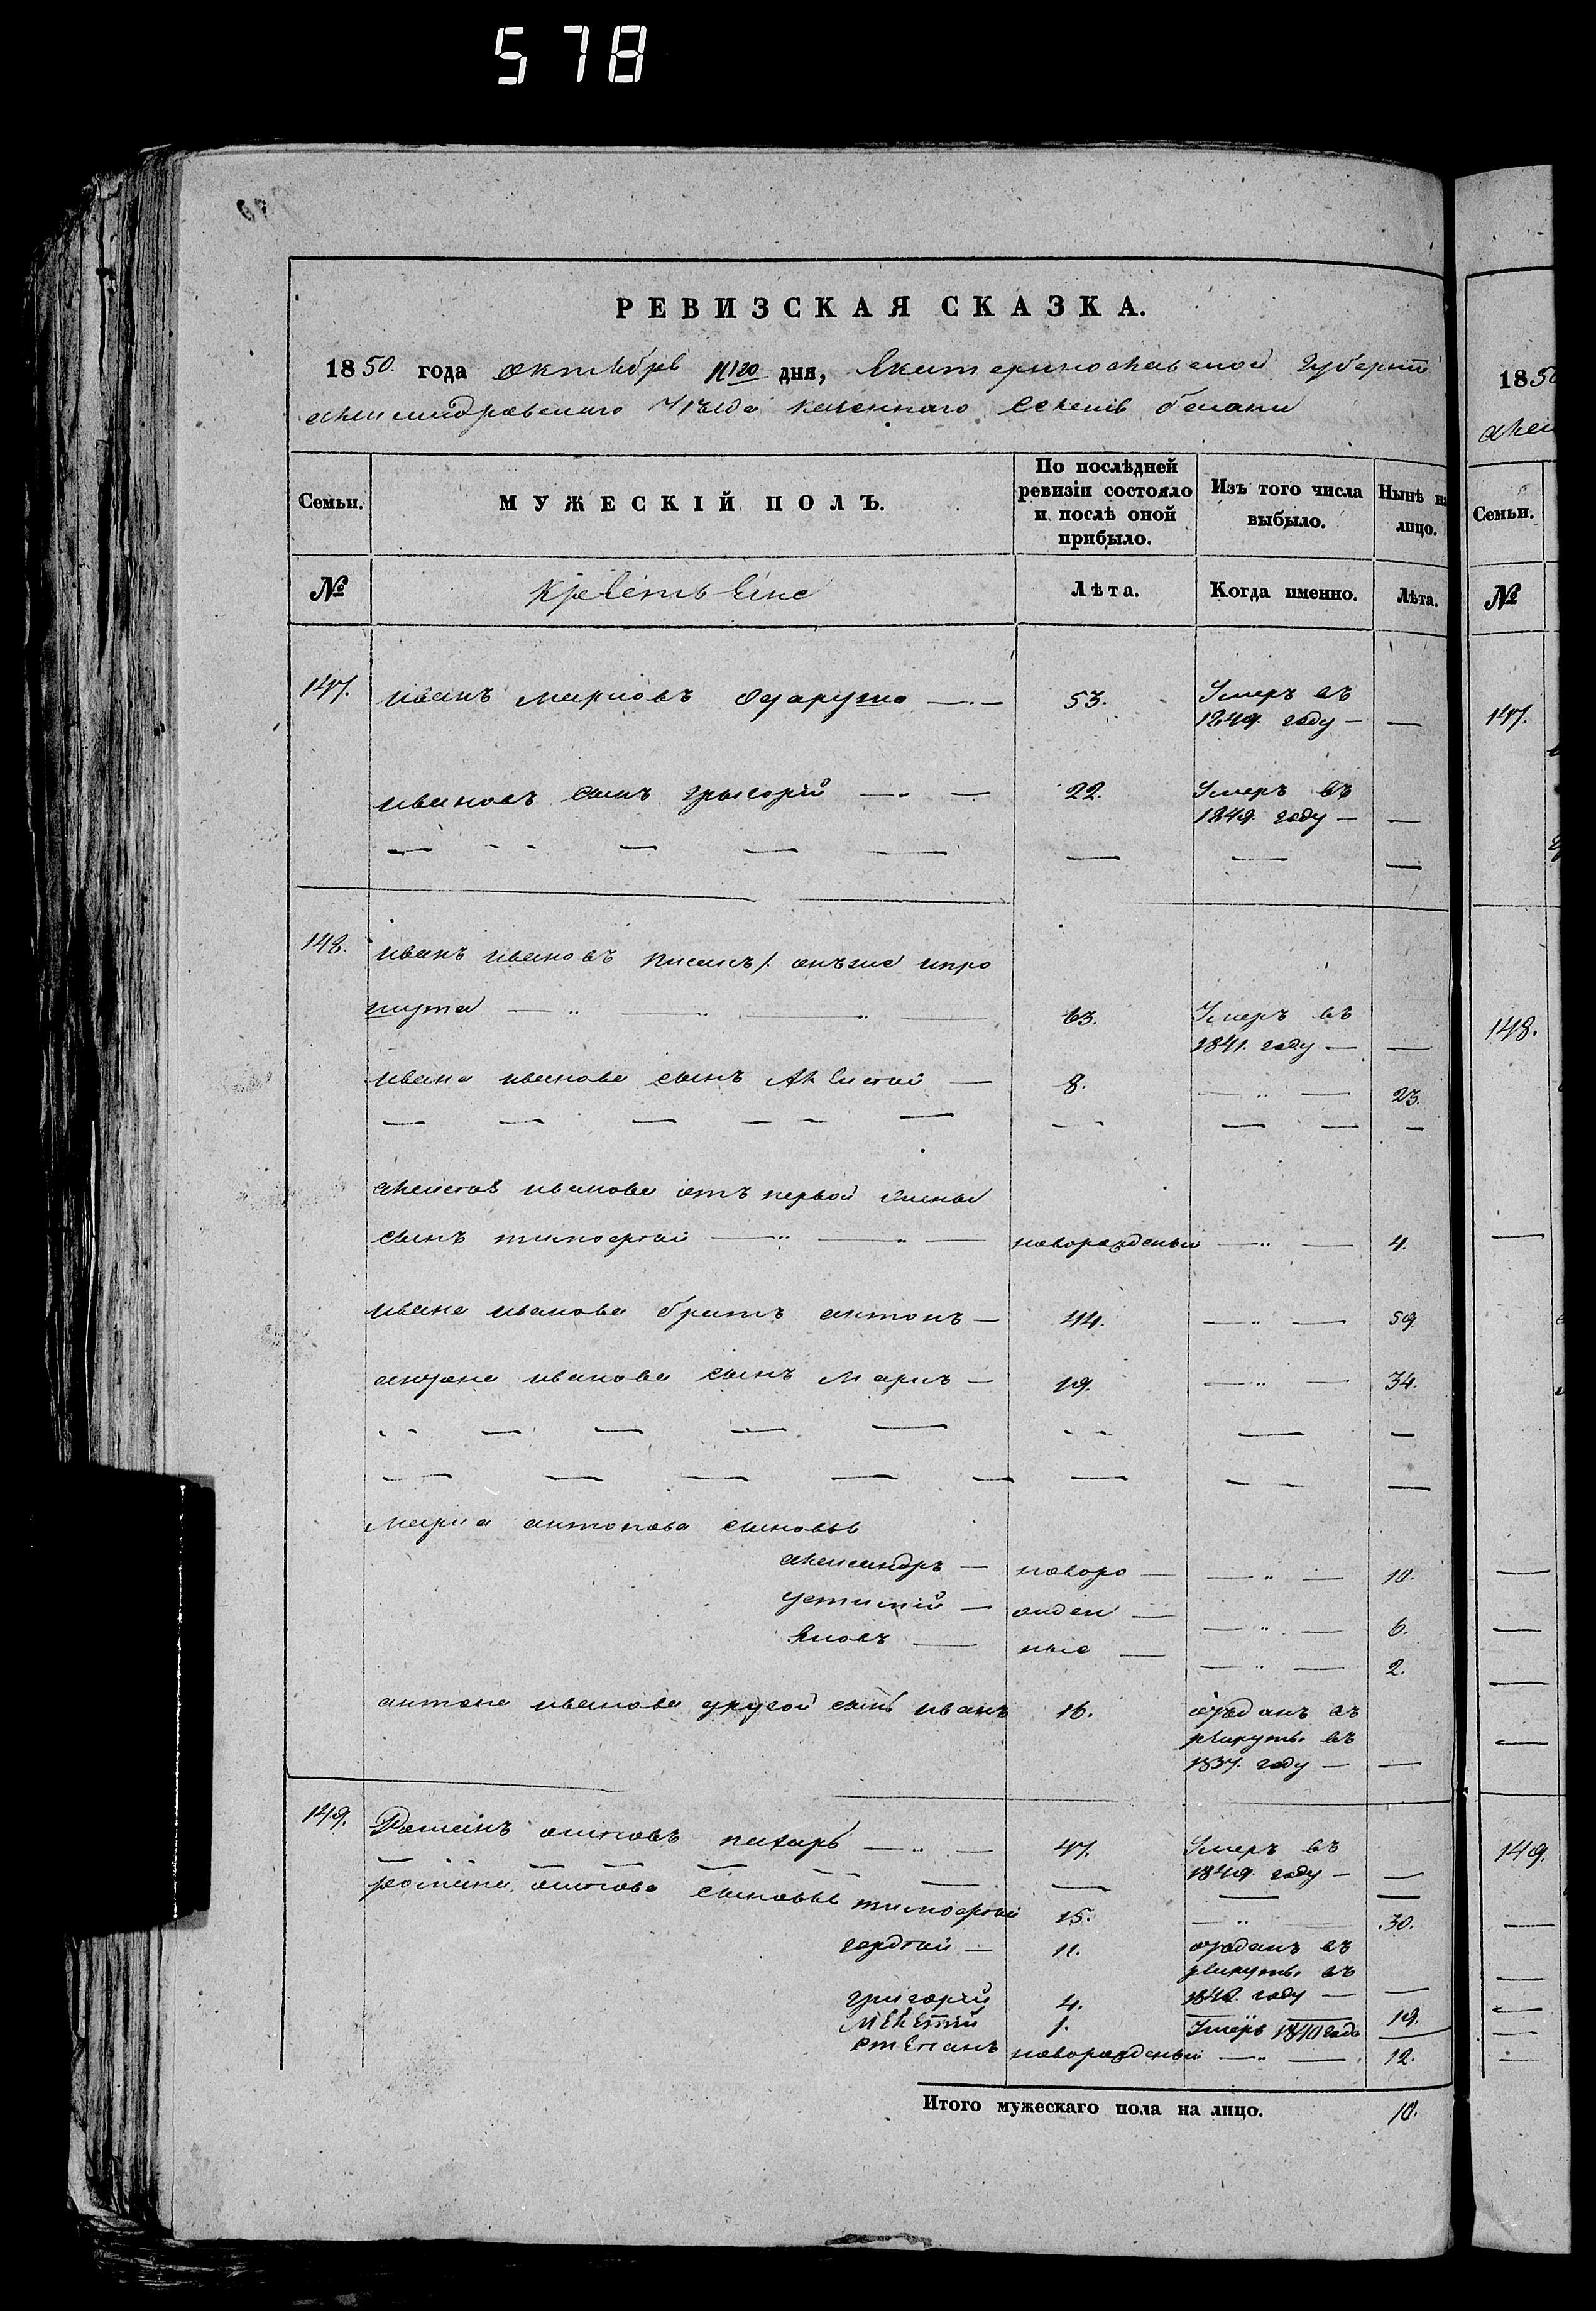 578
РЕВИЗСКАЯ СКАЗКА.
1850. года октября 20 дня, Екатеринославской Губернiи
александровскаго уѣзда казеннаго селенiя
Семьи.
МУЖЕСКIЙ ПОЛЪ.
По послѣдней ревизiи состояло и послѣ оной прибыло.
Изъ того числа выбыло.
Нынѣ на лицо.
№
Лѣта.
Когда именно.
Лѣта.
147. иванъ марковъ 53. Умеръ въ
1849. году —
ивановъ сынъ григорiй 22. Умеръ въ
1849. году —
148. иванъ ивановъ онъже
63. Умеръ въ
1841. году —
ивана иванова сынъ Алексѣй — 8. 23.
алексѣя иванова отъ первой жены
сынъ тимофѣй новорожденый 4.
ивана иванова братъ антонъ — 44. 59.
антона иванова сынъ Марко — 19. 34.
Марка антонова сыновья
александръ — новоро — 10.
устимiй — жден — 6.
Яковъ — ные — 2.
антона иванова другой сынъ иванъ 16. отданъ въ
рекруты въ
1837. году —
149. Романъ осиповъ 47. Умеръ въ
1849. году —
романа осипова сыновья тимофѣй 15. 30.
гордѣй — 11. отданъ въ
рекруты въ
184 году —
григорiй 4. 19.
1. Умеръ 1840 года
степанъ новорожденый 12.
Итого мужескаго пола на лицо. 10.
1850
Семьи.
№
147.
148.
149.